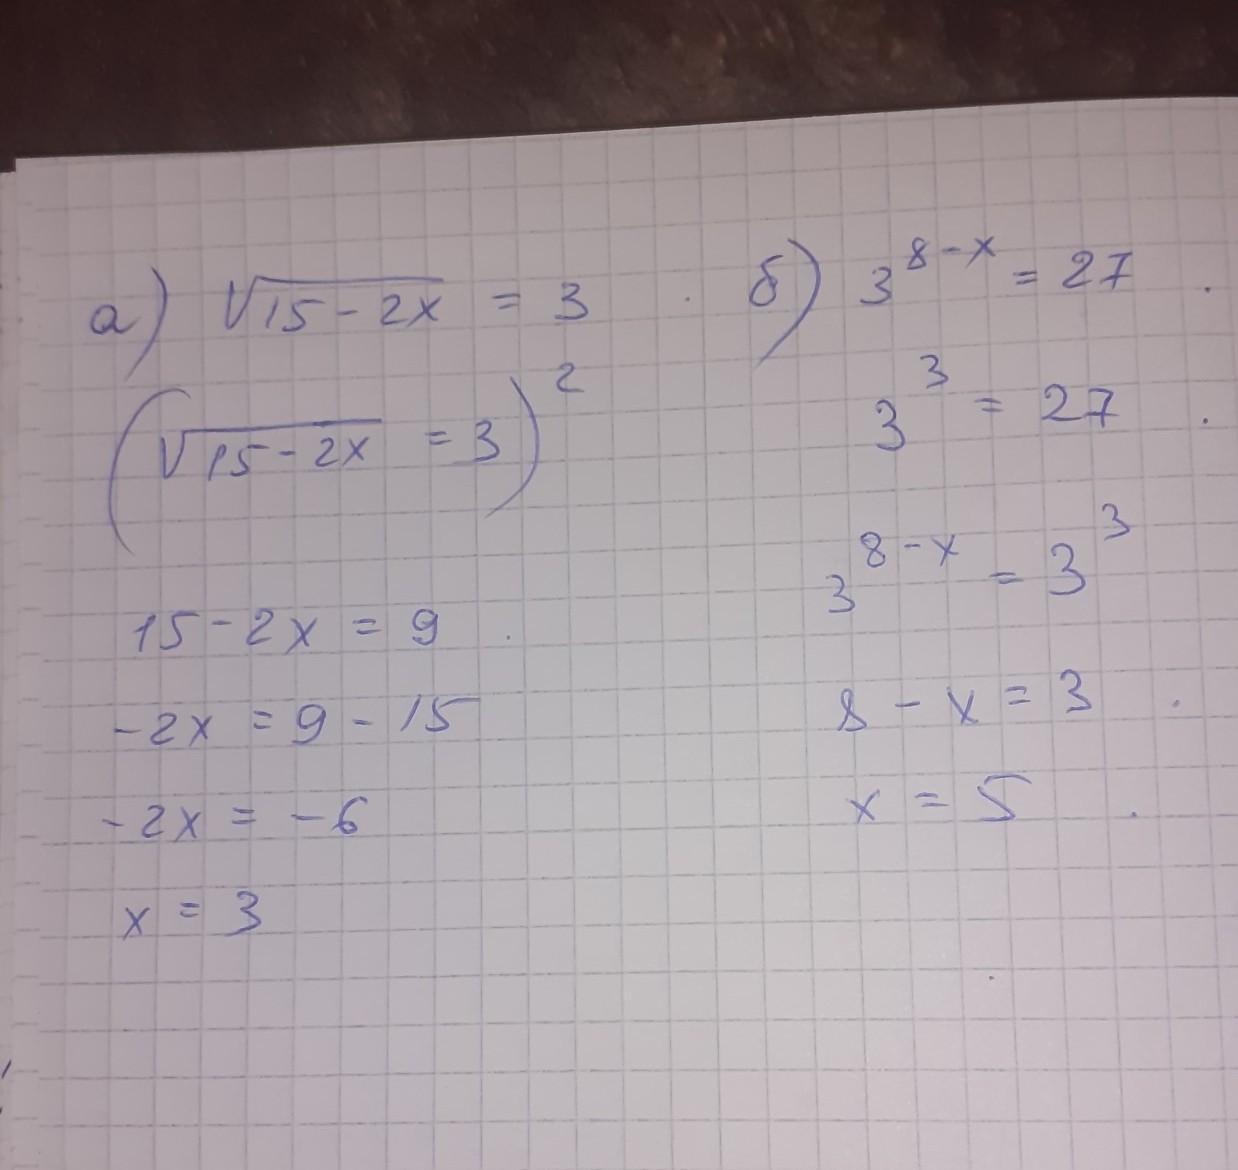 а) √15 - 2x = 3
(√15 - 2x = 3)²
15 - 2x = 9
-2x = 9 - 15
-2x = -6
x = 3
б) 3^8-x = 27
3³ = 27
3^8-x = 3³
8 - x = 3
x = 5